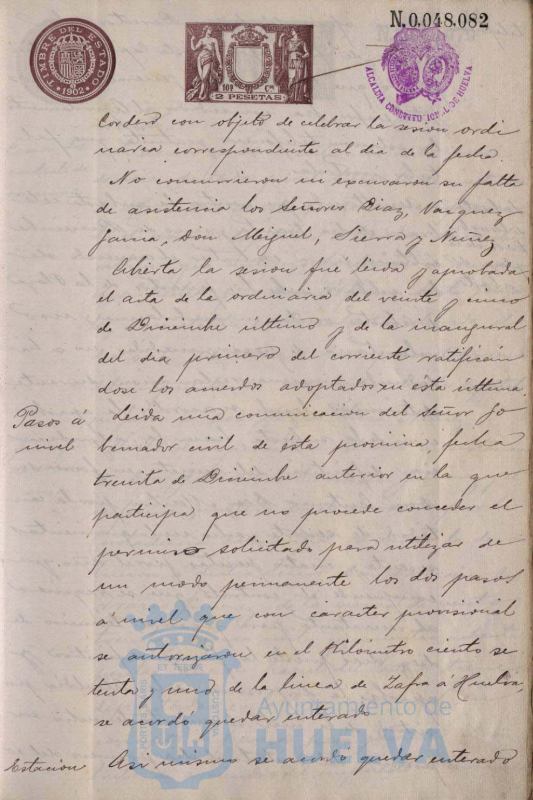 N.0.048.082
TIMBRE DEL ESTADO
1902
109 Cms
2 PESETAS
ALCALDIA CONSTITUCIONAL DE HUELVA
Cordero con objeto de celebrar la sesion ordi
naria correspondiente al dia de la fecha.
No concurrieron ni excusaron su falta
de asistencia los Señores Diaz, Vazquez
Garcia, Don Miguel, Sierra y Nuñez
Abierta la sesion fué leida y aprobada
el acta de la ordinaria del veinte y cinco
de Diciembre último y de la inaugural
del dia primero del corriente ratificán
dose los acuerdos adoptados en ésta última.
Pasos á
nivel
Leida una comunicacion del Señor Go
bernador civil de ésta provincia, fecha
treinta de Diciembre anterior en la que
participa que no procede conceder el
permiso solicitado para utilizar de
un modo permanente los dos pasos
á nivel que con caracter provisional
se autorizaron en el Kilómetro ciento se
tenta y uno de la linea de Zafra á Huelva,
se acordó quedar enterado
Ayuntamiento de
HUELVA
Estacion
Asi mismo se acordo quedar enterado